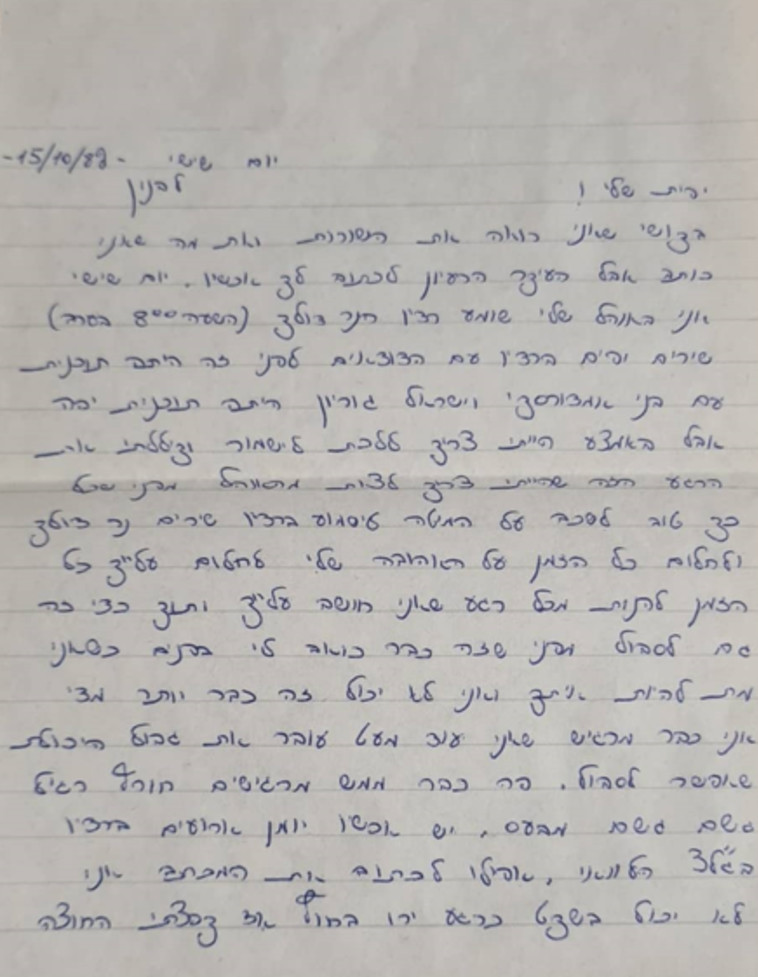 יום שישי -15/10/83-
לבנון
יהית שלי !
בקושי שאני רואה את השורות ואת מה שאני
כותב אבל העיקר הרעיון לכתוב לך עכשיו. יום שישי
אני באוהל שלי שומע רדיו ונר דולק (השעה 8⁰⁰ בערב)
שירים יפים ברדיו עם הדודאים לפני זה היתה תוכנית
עם בני אמדורסקי וישראל גוריון היתה תוכנית יפה
אבל באמצע הייתי צריך ללכת לשמור וקיללתי את
הרגע הזה שהייתי צריך לצאת מהאוהל מפני שכל
כך טוב לשכב על המיטה לשמוע ברדיו שירים נר דולק
ולחלום כל הזמן על האהובה שלי לחלום עלייך כל
הזמן להנות מכל רגע שאני חושב עלייך ותוך כדי כך
גם לסבול מפני שזה כבר כואב לי בפנים כשאני
מת להיות איתך ואני לא יכול זה כבר יותר מדי
אני כבר מרגיש שאני עוד מעט עובר את גבול היכולת
שאפשר לסבול. פה כבר ממש מרגישים חורף רגיל
גשם גשם מבעס. יש עכשיו יומן ארועים ברדיו
בגל"צ אפילו לכתוב את המכתב אני
לא יכול בשקט כרגע ירו בחוץ אז קפצתי החוצה